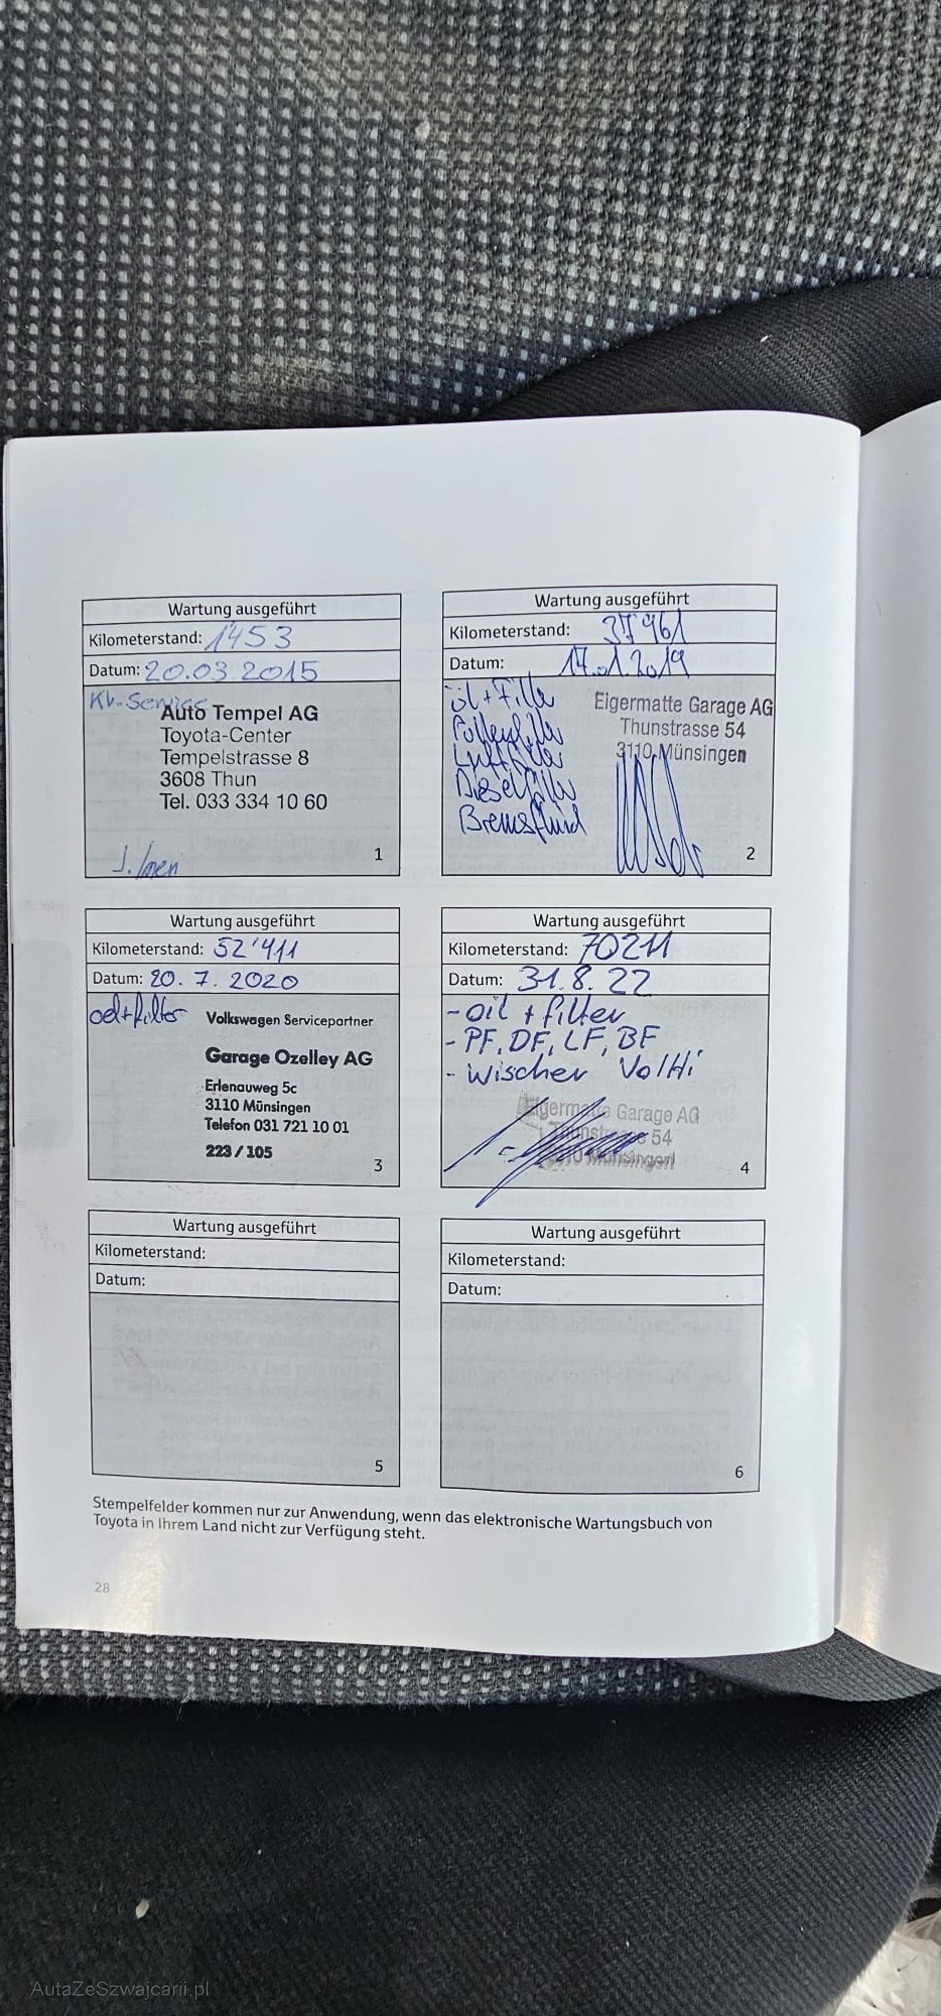 Wartung ausgeführt
Kilometerstand: 1'453
Datum: 20.03.2015
Kl.-Service
Auto Tempel AG
Toyota-Center
Tempelstrasse 8
3608 Thun
Tel. 033 334 10 60
1
Wartung ausgeführt
Kilometerstand: 37'961
Datum: 17.01.2019
öl+Filter
Pollenfilter
Luftfilter
Dieselfilter
Bremsfluid
Eigermatte Garage AG
Thunstrasse 54
3110 Münsingen
2
Wartung ausgeführt
Kilometerstand: 52'411
Datum: 20.7.2020
oel+filter
Volkswagen Servicepartner
Garage Ozelley AG
Erlenauweg 5c
3110 Münsingen
Telefon 031 721 10 01
223 / 105
3
Wartung ausgeführt
Kilometerstand: 70211
Datum: 31.8.22
- oil + filter
- PF, DF, LF, BF
- Wischer Vo/Hi
Eigermatte Garage AG
Thunstrasse 54
3110 Münsingen
4
Wartung ausgeführt
Kilometerstand:
Datum:
5
Wartung ausgeführt
Kilometerstand:
Datum:
6
Stempelfelder kommen nur zur Anwendung, wenn das elektronische Wartungsbuch von
Toyota in Ihrem Land nicht zur Verfügung steht.
28
AutaZeSzwajcarii.pl